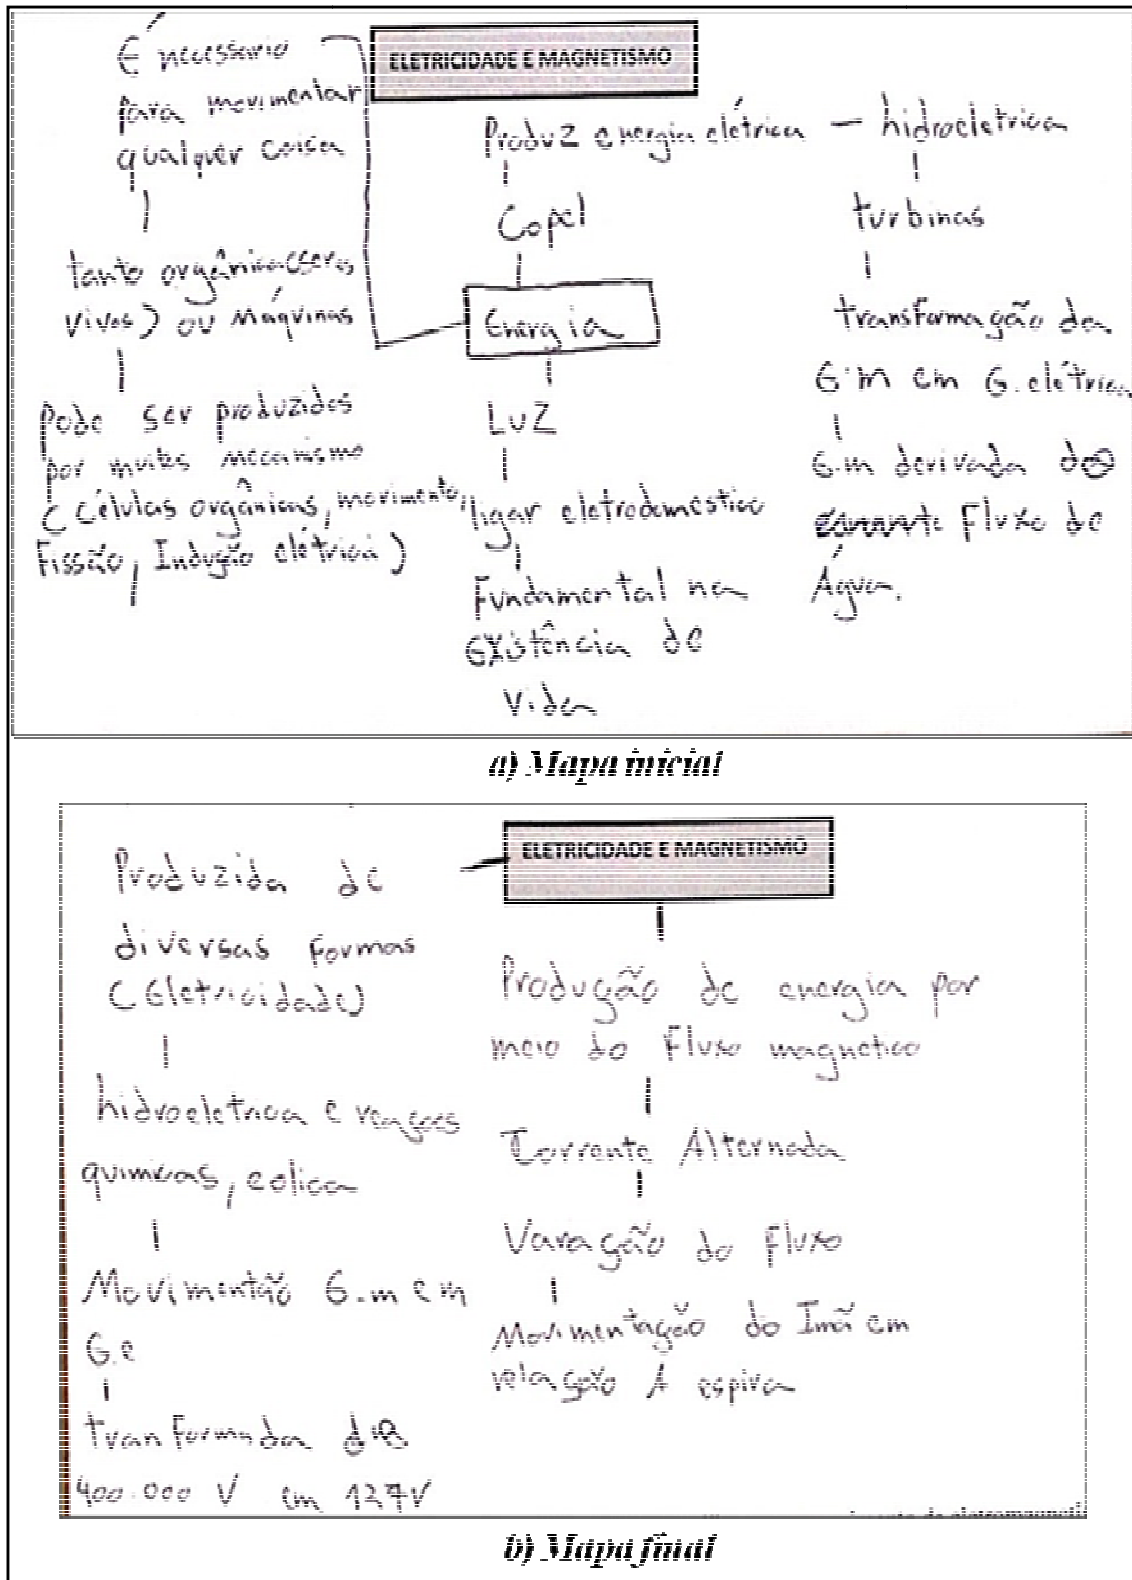 É necessario
para movimentar
qualquer coisa
tanto orgânica(seres
vivos) ou Máquinas
Pode ser produzidos
por muitos mecanismo
(células orgânicas, movimento,
Fissão, Indução elétrica)
ELETRICIDADE E MAGNETISMO
Produz energia elétrica — hidroeletrica
Copel
Energia
LUZ
ligar eletrodoméstico
Fundamental na
Existência de
Vida
turbinas
transformação da
E.m em E.elétrica
E.m derivada do
Fluxo de
Água.
a) Mapa inicial
ELETRICIDADE E MAGNETISMO
Produzida de
diversas formas
(Eletricidade)
hidroeletrica e reações
químicas, eolica
Movimentão E.m em
E.e
tranformada de
400.000 V em 127V
Produção de energia por
meio do Fluxo magnético
Corrente Alternada
Varação do Fluxo
Movimentação do Imã em
relação A espira
b) Mapa final